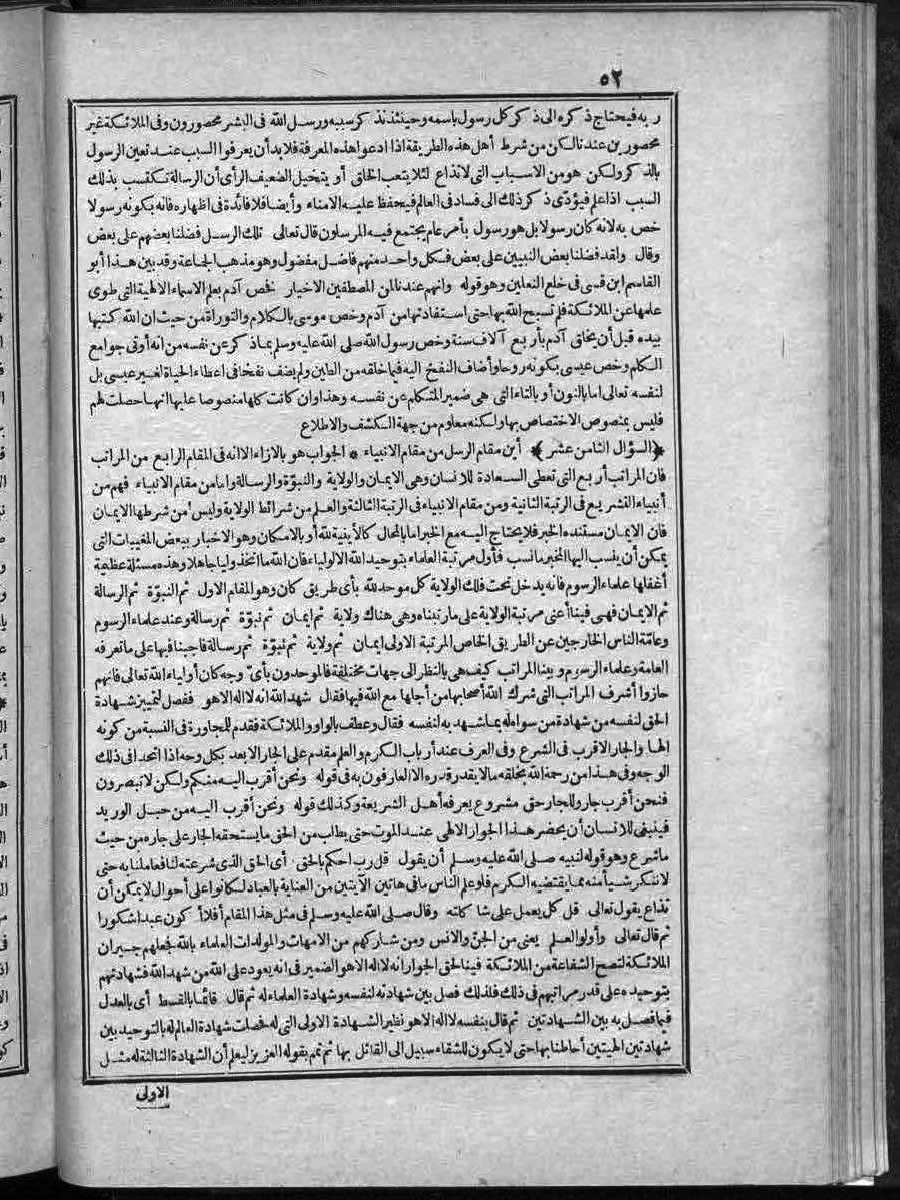 ٥٢
ربه فيحتاج ذكره الى ذكر كل رسول باسمه وحينئذ نذكر سببه ورسل الله فى البشر محصورون وفى الملائكة غير
محصورين عندنا لكن من شرط أهل هذه الطريقة اذا ادعوا هذه المعرفة فلا بد أن يعرفوا السبب عند تعين الرسول
بالذكر ولكن هو من الاسباب التى لا تذاع لئلا يتعب الخلق أو يتخيل الضعيف الرأى أن الرسالة تكتسب بذلك
السبب اذا علم فيؤدّى ذكر ذلك الى فساد فى العالم فيحفظ عليه الامناء وأيضا فلا فائدة فى اظهاره فانه بكونه رسولا
خص به لانه كان رسولا بل هو رسول بأمر عام يجتمع فيه المرسلون قال تعالى تلك الرسل فضلنا بعضهم على بعض
وقال ولقد فضلنا بعض النبيين على بعض فكل واحد منهم فاضل مفضول وهو مذهب الجماعة وقد بين هذا أبو
القاسم ابن قسى فى خلع النعلين وهو قوله وانهم عندنا لمن المصطفين الاخيار فخص آدم بعلم الاسماء الالهية التى طوى
علمها عن الملائكة فلم تسبح الله بها حتى استفادتها من آدم وخص موسى بالكلام والتوراة من حيث ان الله كتبها
بيده قبل أن يخلق آدم بأربع آلاف سنة وخص رسول الله صلى الله عليه وسلم بما ذكر عن نفسه من انه أوتى جوامع
الكلم وخص عيسى بكونه روحا وأضاف النفخ اليه فيما خلقه من الطين ولم يضف نفخا فى اعطاء الحياة لغير عيسى بل
لنفسه تعالى اما بالنون أو بالتاء التى هى ضمير المتكلم عن نفسه وهذا وان كانت كلها منصوصا عليها انها حصلت لهم
فليس بمنصوص الاختصاص بها ولكنه معلوم من جهة الكشف والاطلاع
﴿السؤال الثامن عشر﴾ أين مقام الرسل من مقام الانبياء * الجواب هو بالازاء الا انه فى المقام الرابع من المراتب
فان المراتب أربع التى تعطى السعادة للانسان وهى الايمان والولاية والنبوّة والرسالة واما من مقام الانبياء فهم من
أنبياء التشريع فى الرتبة الثانية ومن مقام الانبياء فى الرتبة الثالثة والعلم من شرائط الولاية وليس من شرطها الايمان
فان الايمان مستنده الخبر فلا يحتاج اليه مع الخبر اما بالمحال كالأينية لله أو بالامكان وهو الاخبار ببعض المغيبات التى
يمكن أن ينسب اليها المخبر ما نسب فأول مرتبة العلماء بتوحيد الله الاولياء فان الله ما اتخذ وليا جاهلا وهذه مسئلة عظيمة
أغفلها علماء الرسوم فانه يدخل تحت فلك الولاية كل موحد لله بأى طريق كان وهو المقام الاول ثم النبوّة ثم الرسالة
ثم الايمان فهى فينا أعنى مرتبة الولاية على ما رتبناه وهى هناك ولاية ثم ايمان ثم نبوّة ثم رسالة وعند علماء الرسوم
وعامّة الناس الخارجين عن الطريق الخاص المرتبة الاولى ايمان ثم ولاية ثم نبوّة ثم رسالة فاجبنا فيها على ما تعرفه
العامة وعلماء الرسوم وبينا المراتب كيف هى بالنظر الى جهات مختلفة فالموحدون بأىّ وجه كان أولياء الله تعالى فانهم
حازوا أشرف المراتب التى شرك الله أصحابها من أجلها مع الله فيها فقال شهد الله انه لا اله الا هو ففصل لتمييز شهادة
الحق لنفسه من شهادة من سواه له بما شهد به لنفسه فقال وعطف بالواو والملائكة فقدم للمجاورة فى النسبة من كونه
الها والجار الاقرب فى الشرع وفى العرف عند أرباب الكرم والعلم مقدم على الجار الابعد بكل وجه اذا اتحدا فى ذلك
الوجه وفى هذا من رحمة الله بخلقه ما لا يقدر قدره الا العارفون به فى قوله ونحن أقرب اليه منكم ولكن لا تبصرون
فنحن أقرب جار وللجار حق مشروع يعرفه أهل الشريعة وكذلك قوله ونحن أقرب اليه من حبل الوريد
فينبغى للانسان أن يحضر هذا الجوار الالهى عند الموت حتى يطلب من الحق ما يستحقه الجار على جاره من حيث
ما شرع وهو قوله لنبيه صلى الله عليه وسلم أن يقول قل رب احكم بالحق أى الحق الذى شرعته لنا فعاملنا به حتى
لا ننكر شيأ منه مما يقتضيه الكرم فلو علم الناس ما فى هاتين الآيتين من العناية بالعباد لكانوا على أحوال لا يمكن أن
تذاع يقول تعالى قل كل يعمل على شاكلته وقال صلى الله عليه وسلم فى مثل هذا المقام أفلا أكون عبدا شكورا
ثم قال تعالى وأولو العلم يعنى من الجنّ والانس ومن شاركهم من الامهات والمولدات العلماء بالله فجعلهم جيران
الملائكة لتصح الشفاعة من الملائكة فينا لحق الجوار انه لا اله الا هو الضمير فى انه يعود على الله من شهد الله فشهادتهم
بتوحيده على قدر مراتبهم فى ذلك فلذلك فصل بين شهادته لنفسه وشهادة العلماء له ثم قال قائما بالقسط أى بالعدل
فيما فصل به بين الشهادتين ثم قال بنفسه لا اله الا هو نظير الشهادة الاولى التى له فحصلت شهادة العالم له بالتوحيد بين
شهادتين الهيتين أحاطتا بها حتى لا يكون للشقاء سبيل الى القائل بها ثم تمم بقوله العزيز ليعلم أن الشهادة الثالثة له مثل
الاولى